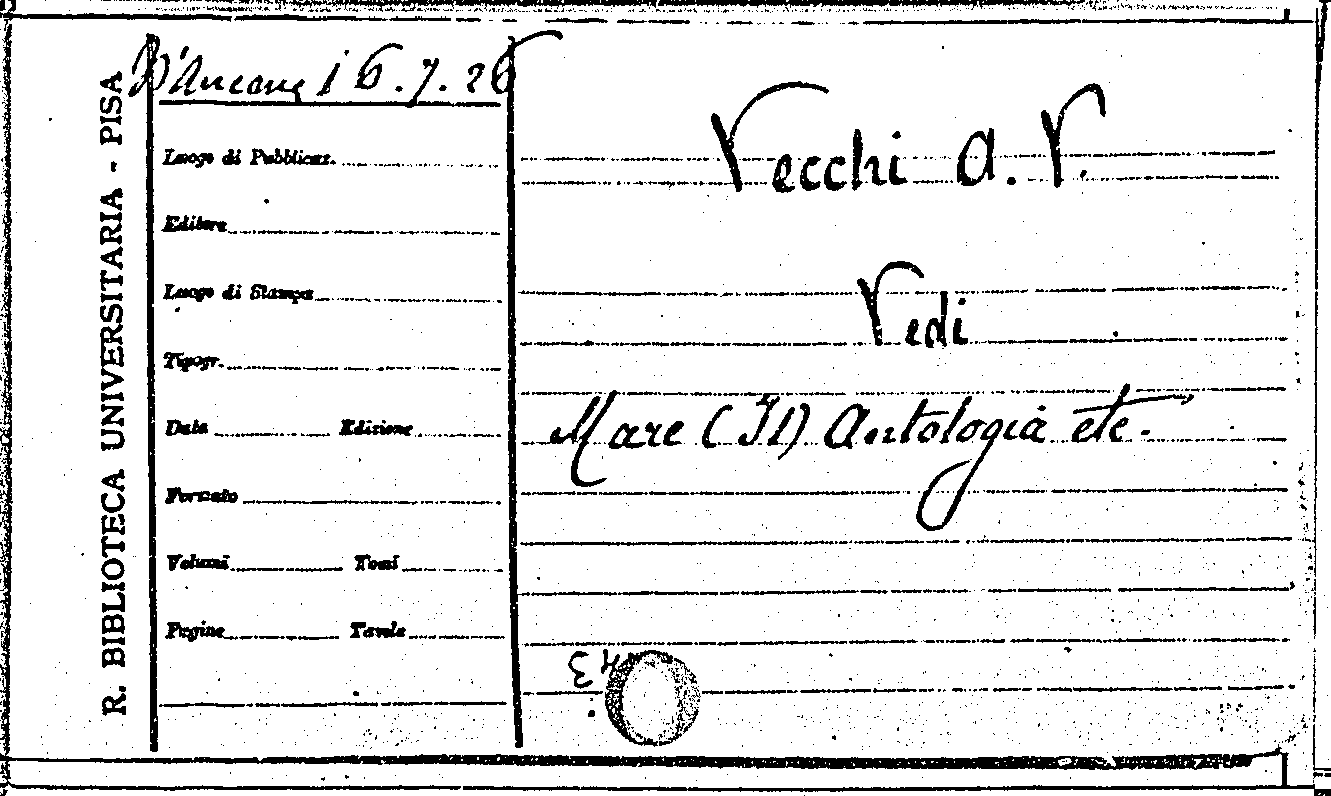 R. BIBLIOTECA UNIVERSITARIA - PISA
D'Ancona 16.7.26
Luogo di Pubblicaz.
Editore
Luogo di Stampa
Tipogr.
Data Edizione
Formato
Volumi Tomi
Pagine Tavole
Vecchi A. V.
Vedi
Mare (Il) Antologia etc.